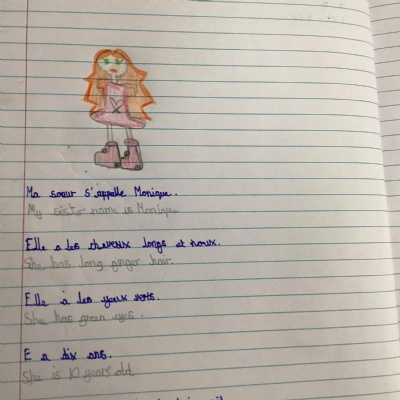 Ma soeur s'appelle Monique.
My sister name is Monique
Elle a les cheveux longs et roux.
She has long ginger hair.
Elle à les yeux verts.
She has green eyes.
E a dix ans.
She is 10 years old.